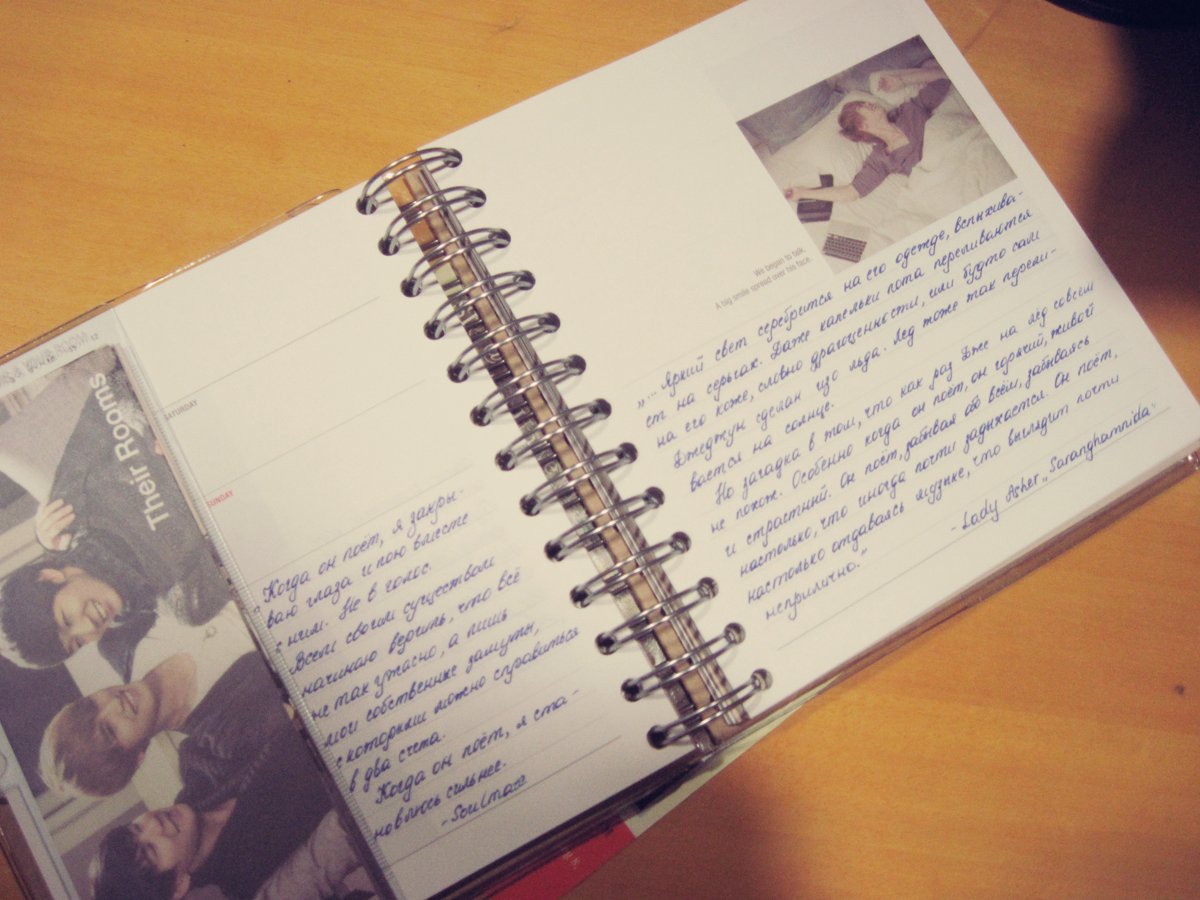 Their Rooms
SATURDAY
SUNDAY
"Когда он поёт, я закры-
ваю глаза и пою вместе
с ним. Не в голос.
Всем своим существом
начинаю верить, что всё
не так ужасно, а лишь
мои собственные заморочки,
с которыми можно справиться
в два счета.
Когда он поёт, я ста-
новлюсь сильнее.
- Soulmate
We began to talk.
A big smile spread over his face.
"... Яркий свет серебрится на его одежде, вспыхива-
ет на серьгах. Даже капельки пота переливаются
на его коже, словно драгоценности, или будто сам
Джеджун сделан изо льда. Лед тоже так перели-
вается на солнце.
Но загадка в том, что как раз Дже на лёд совсем
не похож. Особенно когда он поёт, он горячий, живой
и страстный. Он поёт, забывая обо всём, забываясь
настолько, что иногда почти задыхается. Он поёт,
настолько отдаваясь музыке, что выглядит почти
неприлично."
- Lady Asher "Saranghamnida"